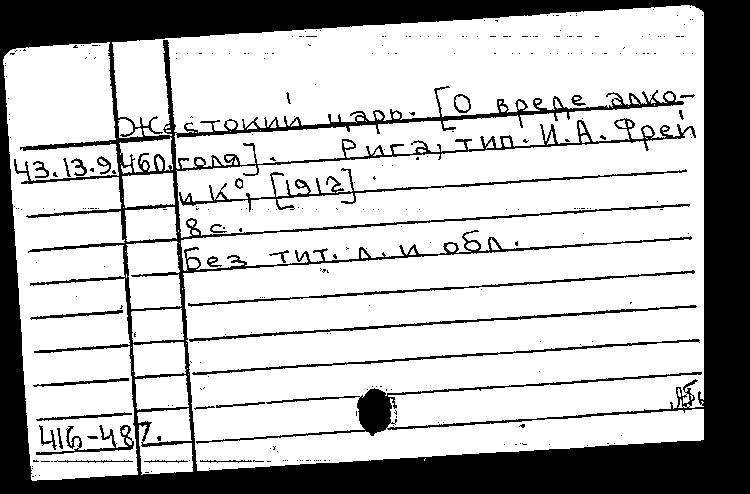 Жестокий царь. [О вреде алко-
43.13.9.460. голя]. Рига, тип. И.А. Фрей
и К°, [1912].
8 с.
Без тит. л. и обл.
416-487.